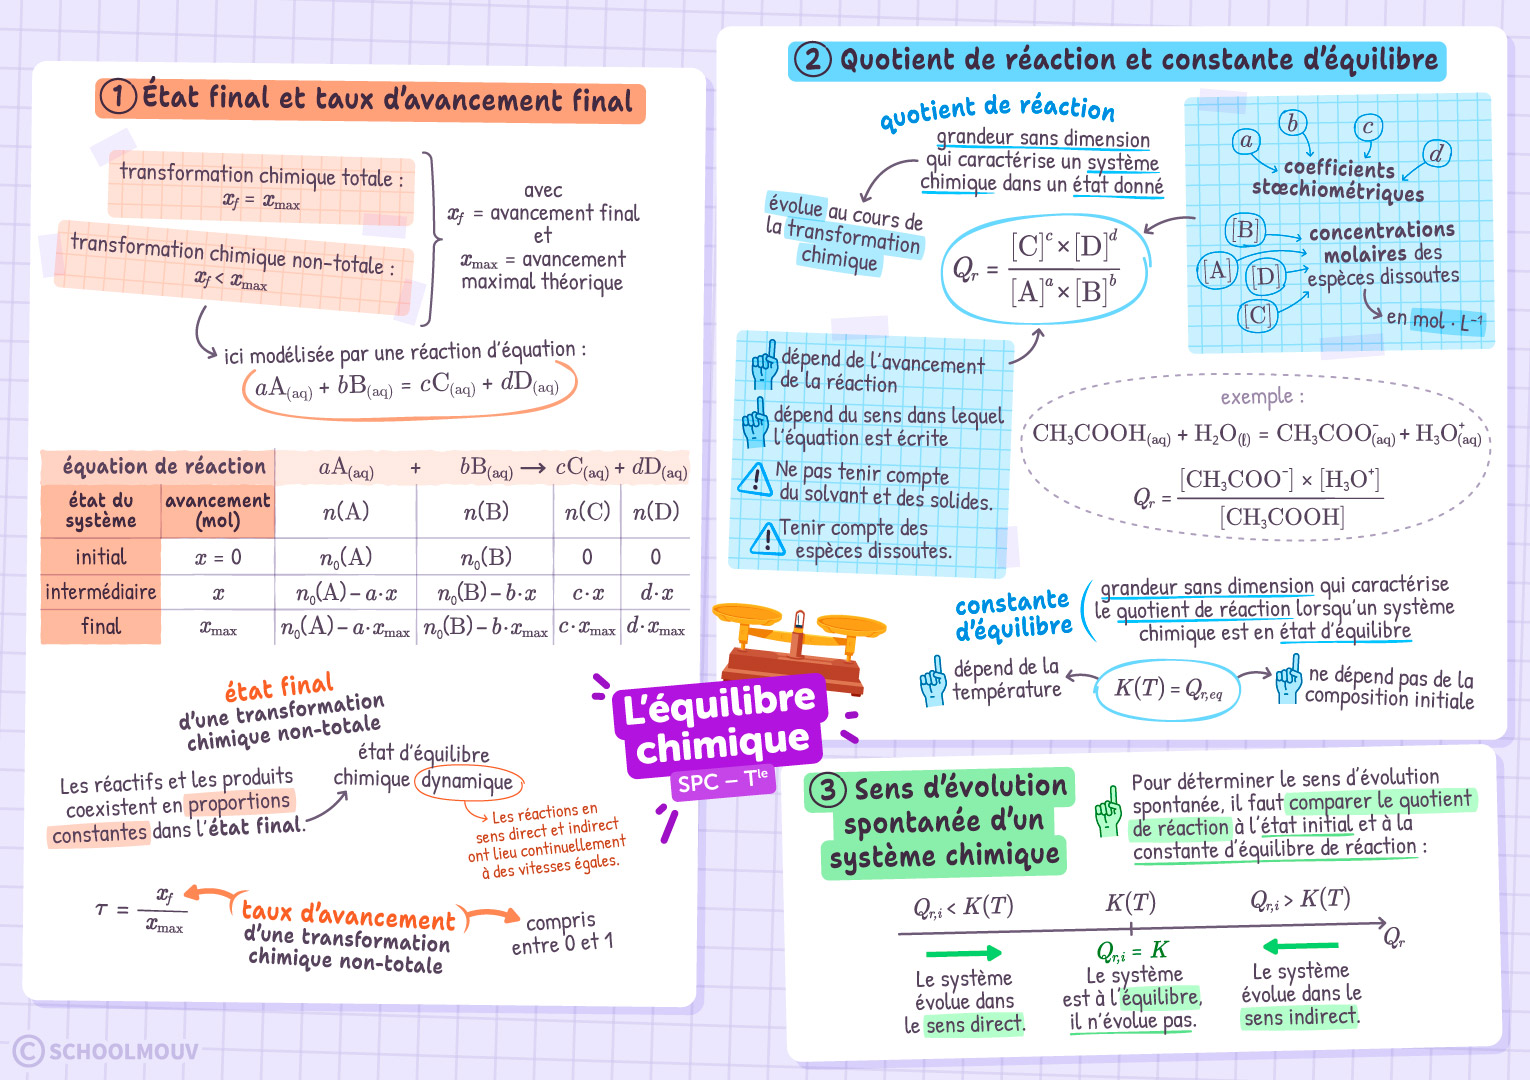 1 État final et taux d'avancement final
transformation chimique totale :
x_f = x_max
transformation chimique non-totale :
x_f < x_max
avec
x_f = avancement final
et
x_max = avancement
maximal théorique
ici modélisée par une réaction d'équation :
aA(aq) + bB(aq) = cC(aq) + dD(aq)
équation de réaction aA(aq) + bB(aq) → cC(aq) + dD(aq)
état du système avancement (mol) n(A) n(B) n(C) n(D)
initial x = 0 n₀(A) n₀(B) 0 0
intermédiaire x n₀(A) – a·x n₀(B) – b·x c·x d·x
final x_max n₀(A) – a·x_max n₀(B) – b·x_max c·x_max d·x_max
état final
d'une transformation
chimique non-totale
Les réactifs et les produits
coexistent en proportions
constantes dans l'état final.
état d'équilibre
chimique dynamique
Les réactions en
sens direct et indirect
ont lieu continuellement
à des vitesses égales.
τ = x_f / x_max
taux d'avancement
d'une transformation
chimique non-totale
compris
entre 0 et 1
L'équilibre
chimique
SPC – Tˡᵉ
2 Quotient de réaction et constante d'équilibre
quotient de réaction
grandeur sans dimension
qui caractérise un système
chimique dans un état donné
évolue au cours de
la transformation
chimique
Q_r = [C]^c × [D]^d / [A]^a × [B]^b
a b c d
coefficients
stœchiométriques
[B] [A] [D] [C]
concentrations
molaires des
espèces dissoutes
en mol · L⁻¹
dépend de l'avancement
de la réaction
dépend du sens dans lequel
l'équation est écrite
Ne pas tenir compte
du solvant et des solides.
Tenir compte des
espèces dissoutes.
exemple :
CH₃COOH(aq) + H₂O(ℓ) = CH₃COO⁻(aq) + H₃O⁺(aq)
Q_r = [CH₃COO⁻] × [H₃O⁺] / [CH₃COOH]
constante
d'équilibre
grandeur sans dimension qui caractérise
le quotient de réaction lorsqu'un système
chimique est en état d'équilibre
dépend de la
température
K(T) = Q_r,eq
ne dépend pas de la
composition initiale
3 Sens d'évolution
spontanée d'un
système chimique
Pour déterminer le sens d'évolution
spontanée, il faut comparer le quotient
de réaction à l'état initial et à la
constante d'équilibre de réaction :
Q_r,i < K(T) K(T) Q_r,i > K(T)
Q_r
Q_r,i = K
Le système
évolue dans
le sens direct.
Le système
est à l'équilibre,
il n'évolue pas.
Le système
évolue dans le
sens indirect.
© SCHOOLMOUV